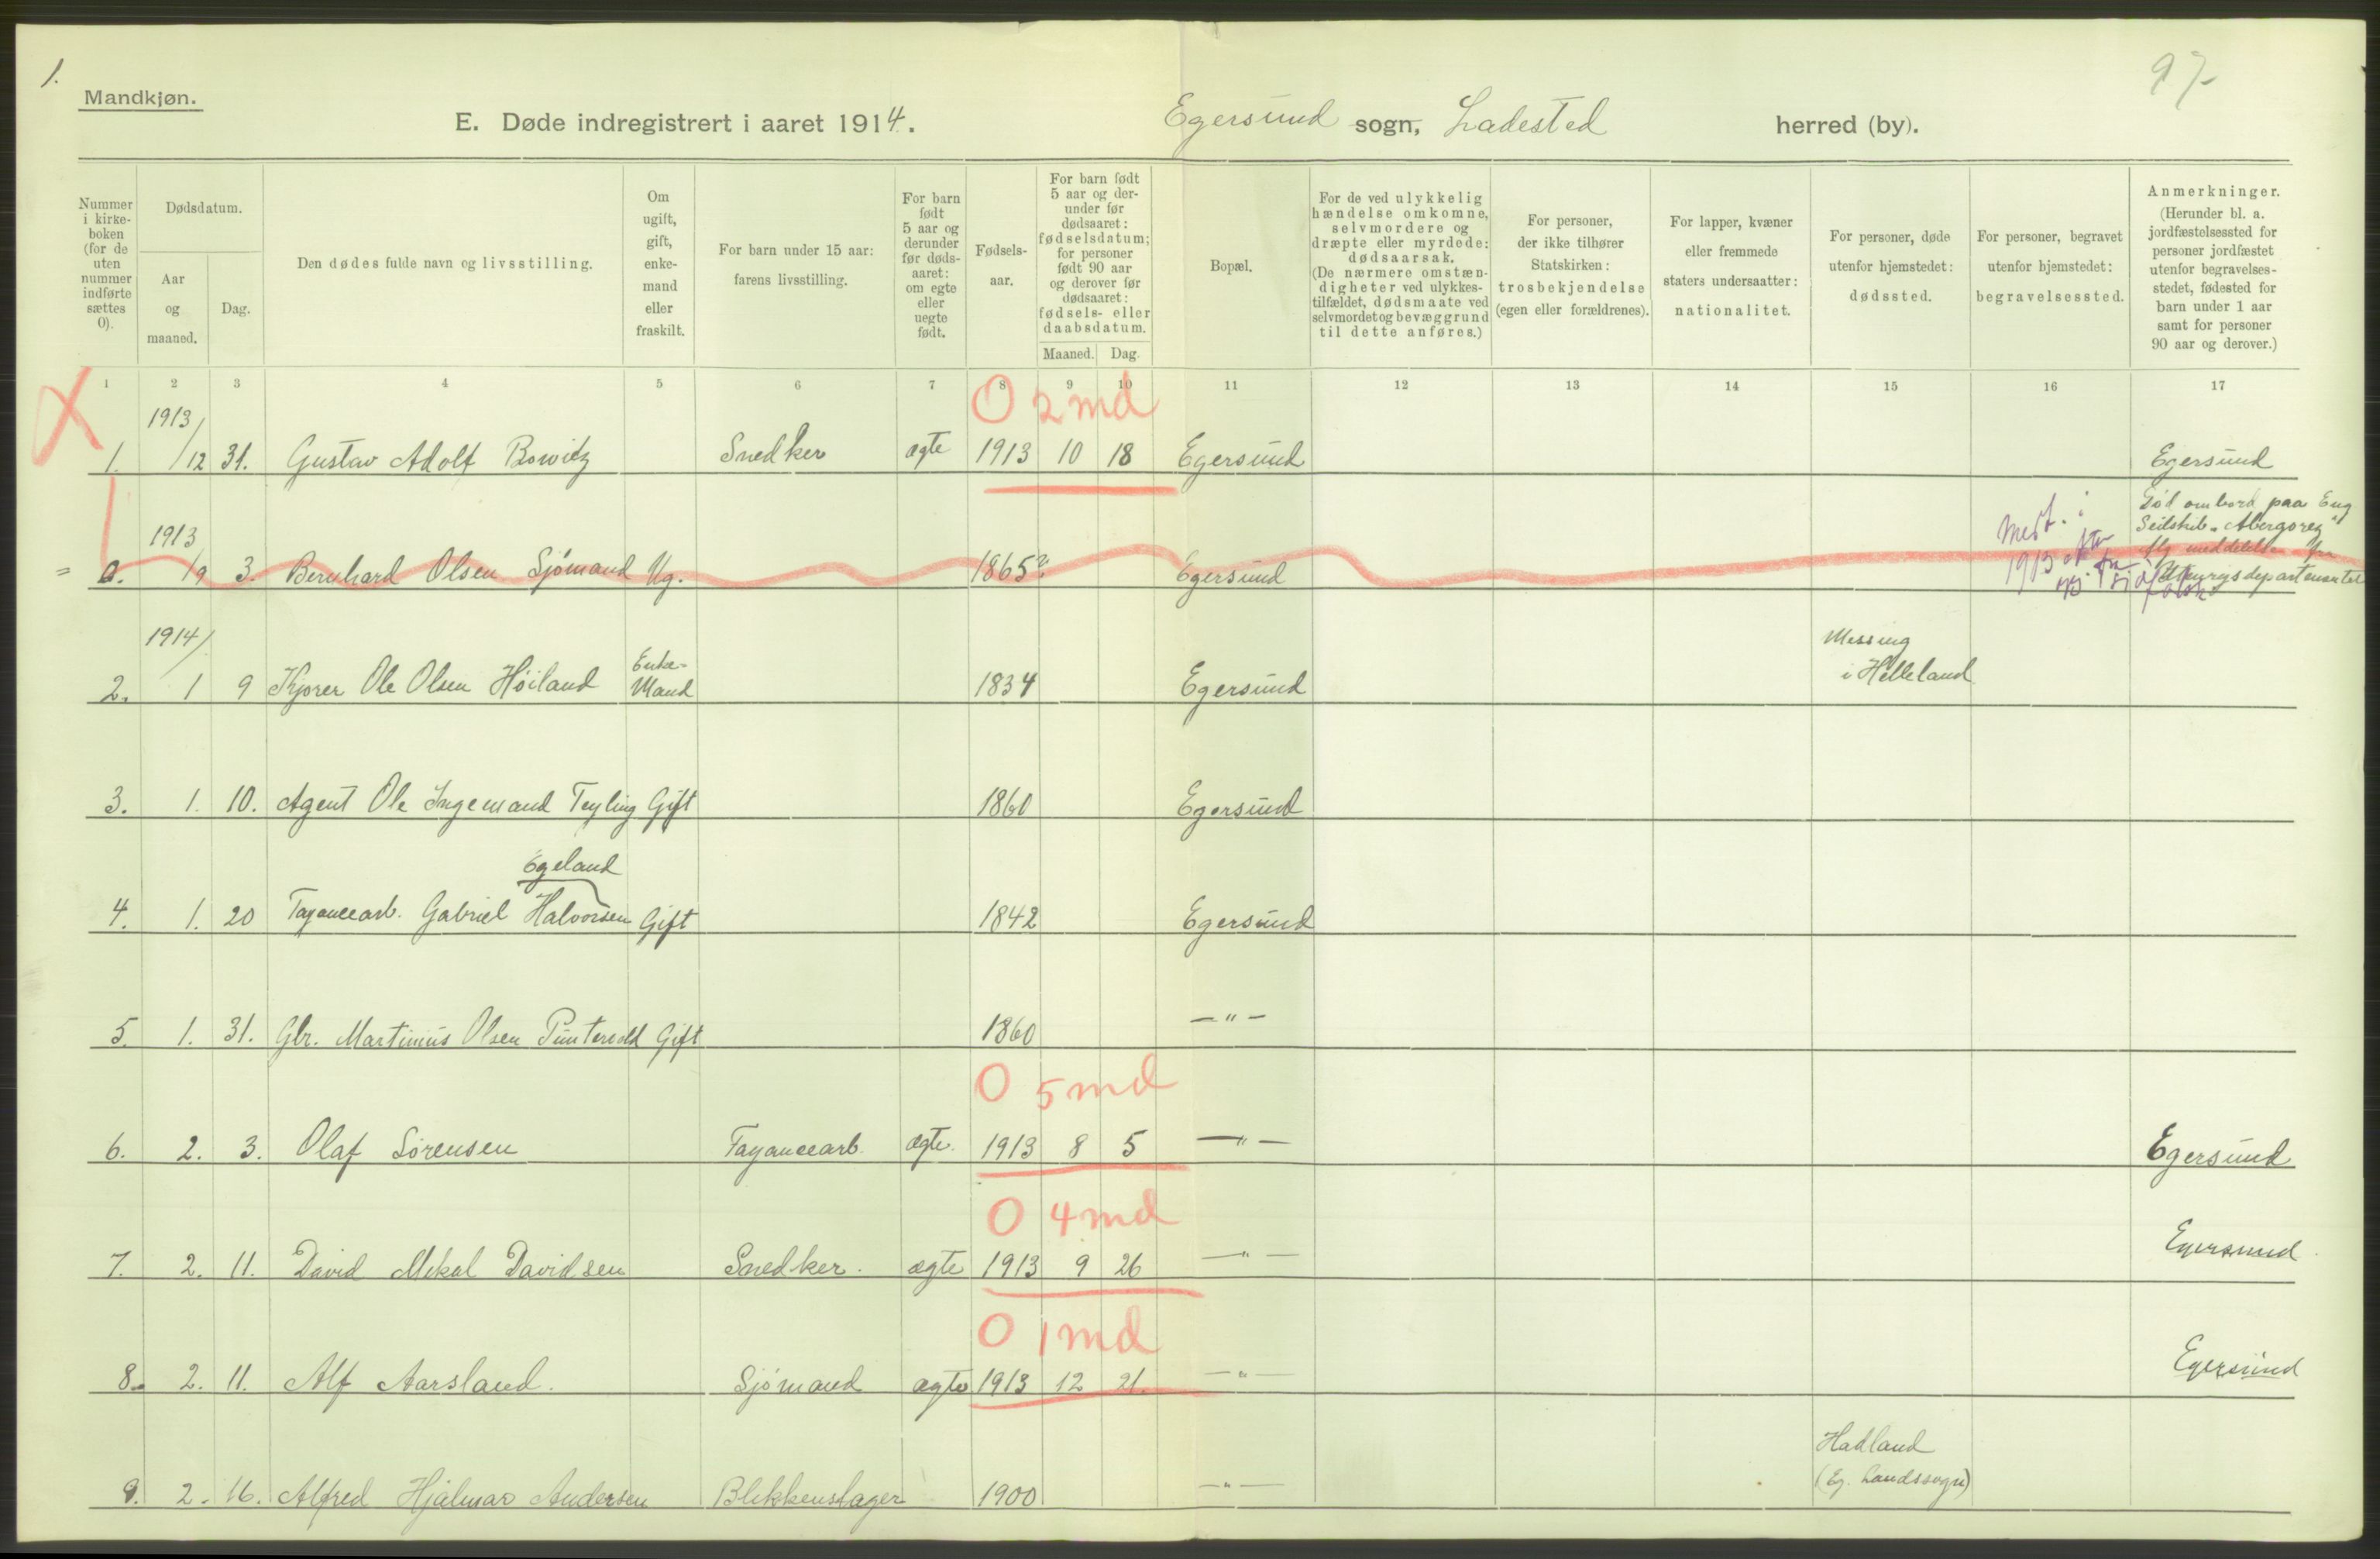 1.
97
Mandkjøn.
E. Døde indregistrert i aaret 1914. Egersund sogn, Ladested herred (by).
Nummer i kirke-boken (for de uten nummer indførte sættes 0).
Dødsdatum.
Aar og maaned.
Dag.
Den dødes fulde navn og livsstilling.
Om ugift, gift, enke-mand eller fraskilt.
For barn under 15 aar: farens livsstilling.
For barn født 5 aar og derunder før døds-aaret: om egte eller uegte født.
Fødsels-aar.
For barn født 5 aar og der-under før dødsaaret: fødselsdatum; for personer født 90 aar og derover før dødsaaret: fødsels- eller daabsdatum.
Maaned. Dag.
Bopæl.
For de ved ulykkelig hændelse omkomne, selvmordere og dræpte eller myrdede: dødsaarsak. (De nærmere omstæn-digheter ved ulykkes-tilfældet, dødsmaate ved selvmordet og bevæggrund til dette anføres.)
For personer, der ikke tilhører Statskirken: trosbekjendelse (egen eller forældrenes).
For lapper, kvæner eller fremmede staters undersaatter: nationalitet.
For personer, døde utenfor hjemstedet: dødssted.
For personer, begravet utenfor hjemstedet: begravelsessted.
Anmerkninger. (Herunder bl. a. jordfæstelsessted for personer jordfæstet utenfor begravelses-stedet, fødested for barn under 1 aar samt for personer 90 aar og derover.)
1 2 3 4 5 6 7 8 9 10 11 12 13 14 15 16 17
0 2 md
1913/
1. /12 31. Gustav Adolf Bowitz Snedker ægte 1913 10 18 Egersund Egersund
1913
0. /9 3. Bernhard Olsen Sjømand Ug. 1865? Egersund
Død ombord paa Eng
Seilskib
meddelelse fra
Utenrigsdepartementet
Medt. i
1913
1914/
2. 1 9 Kjører Ole Olsen Høiland Enke-Mand 1834 Egersund Messing i Helleland
3. 1. 10. Agent Ole Ingemand Teyling Gift 1860 Egersund
Egeland
4. 1. 20 Fayancearb. Gabriel Halvorsen Gift 1842 Egersund
5. 1. 31. Gbr. Martinius Olsen Puntervold Gift 1860 —"—
0 5 md
6. 2. 3. Olaf Sørensen Fayancearb. ægte. 1913 8 5 —"— Egersund
0 4 md
7. 2. 11. David Mikal Davidsen Snedker. ægte 1913 9 26 —"— Egersund
0 1 md
8. 2. 11. Alf Aarsland. Sjømand ægte 1913 12 21. —"— Egersund
9. 2. 16. Alfred Hjalmar Andersen Blikkenslager 1900 —"— Hadland (Eg. Landssogn)